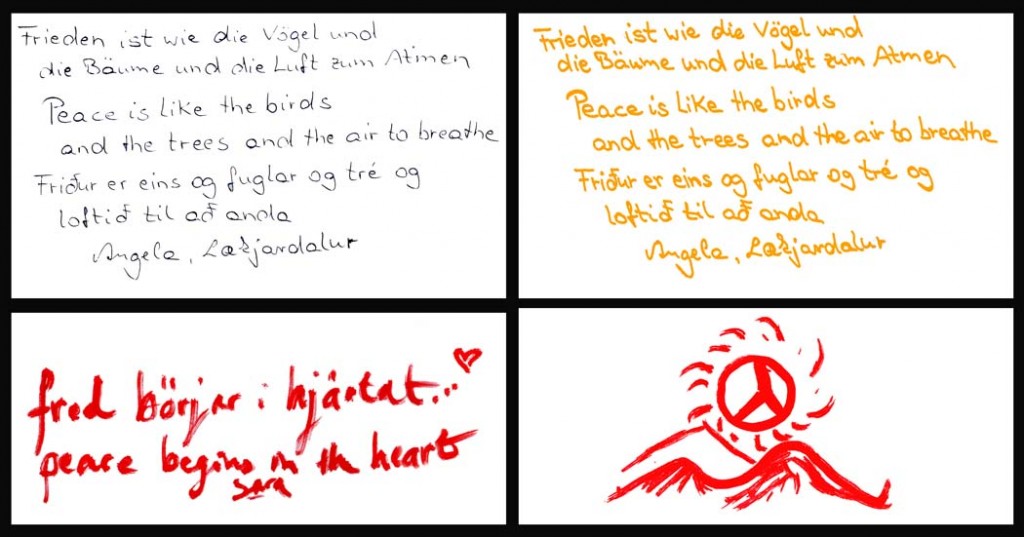 Frieden ist wie die Vögel und
die Bäume und die Luft zum Atmen
Peace is like the birds
and the trees and the air to breathe
Friður er eins og fuglar og tré og
loftið til að anda
Angela, Lækjardalur
Frieden ist wie die Vögel und
die Bäume und die Luft zum Atmen
Peace is like the birds
and the trees and the air to breathe
Friður er eins og fuglar og tré og
loftið til að anda
Angela, Lækjardalur
fred börjar i hjärtat...
peace begins in the heart
Sara